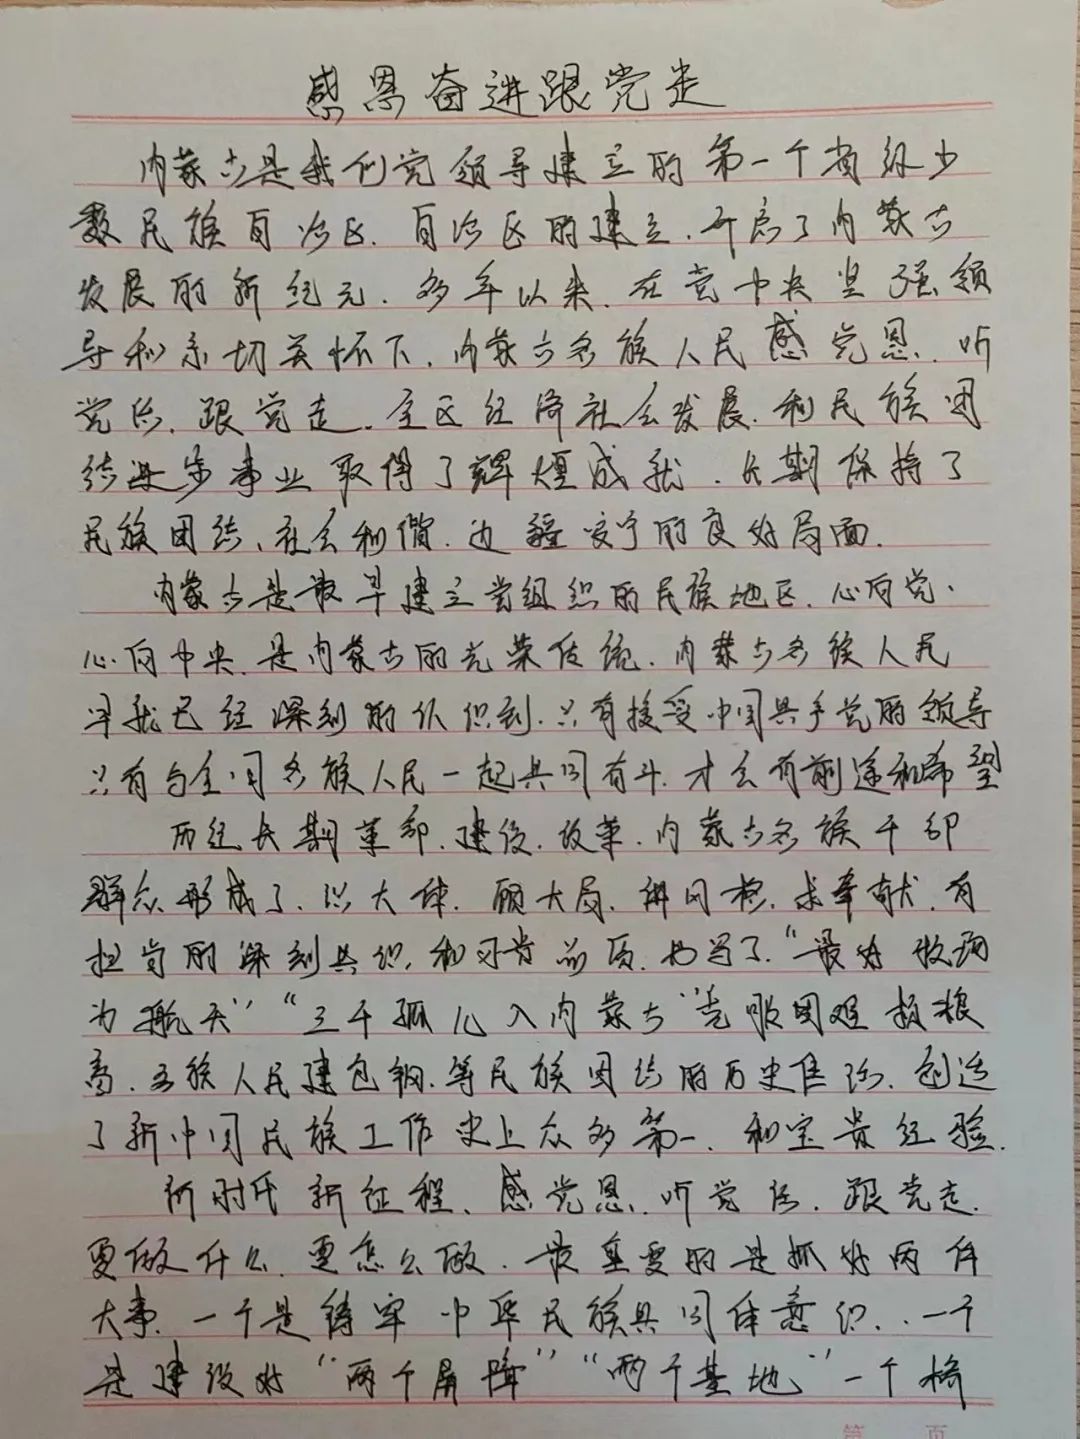 感恩奋进跟党走
内蒙古是我们党领导建立的第一个省级少
数民族自治区.自治区的建立.开启了内蒙古
发展的新纪元.多年以来.在党中央坚强领
导和亲切关怀下.内蒙古各族人民感党恩.听
党话.跟党走.全区经济社会发展.和民族团
结进步事业取得了辉煌成就.长期保持了
民族团结、社会和谐.边疆安宁的良好局面.
内蒙古是最早建立党组织的民族地区.心向党.
心向中央.是内蒙古的光荣传统.内蒙古各族人民
早就已经深刻的认识到.只有接受中国共产党的领导
只有与全国各族人民一起共同奋斗.才会有前途和希望
历经长期革命.建设.改革.内蒙古各族干部
群众形成了.识大体.顾大局.讲风格.求奉献.有
担当的深刻共识.和可贵品质.书写了.“最好牧场
为航天”“三千孤儿入内蒙古”克服困难 损粮
高.各族人民建包钢.等民族团结的历史佳话.创造
了新中国民族工作史上众多第一.和宝贵经验.
新时代新征程、感党恩.听党话.跟党走.
要做什么.要怎么做.最重要的是抓好两件
大事.一个是铸牢中华民族共同体意识..一个
是建设好“两个屏障”“两个基地”一个桥
第 页